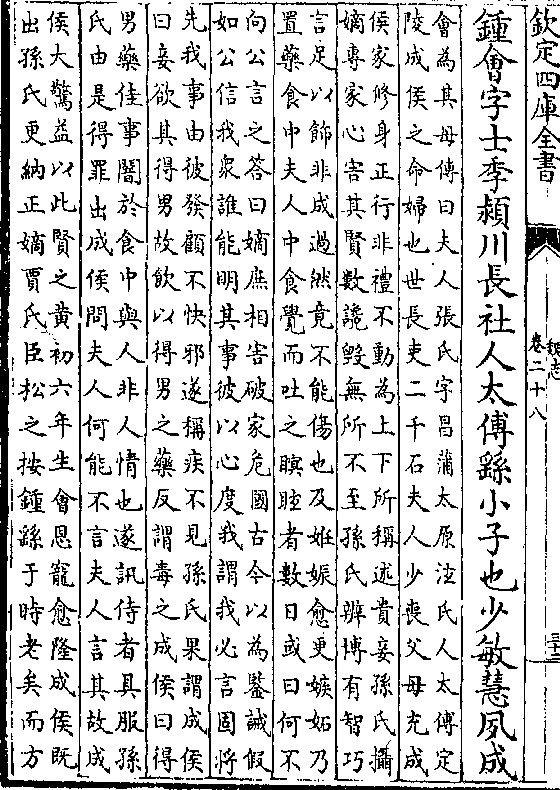 欽定四庫全書
魏志
卷二十八
三十二
鍾會字士季潁川長社人太傅繇小子也少敏慧夙成
會為其母傳曰夫人張氏字昌蒲太原泫氏人太傅定
陵成侯之命婦也世長吏二千石夫人少喪父母充成
侯家修身正行非禮不動為上下所稱述貴妾孫氏攝
嫡專家心害其賢數讒毁無所不至孫氏辨博有智巧
言足以飾非成過然竟不能傷也及姙娠愈更嫉妬乃
置藥食中夫人中食覺而吐之瞑眩者數日或曰何不
向公言之答曰嫡庶相害破家危國古今以為鑒誡假
如公信我衆誰能明其事彼以心度我謂我必言固將
先我事由彼發顧不快邪遂稱疾不見孫氏果謂成侯
曰妾欲其得男故飲以得男之藥反謂毒之成侯曰得
男藥佳事闇於食中與人非人情也遂訊侍者具服孫
氏由是得罪出成侯問夫人何能不言夫人言其故成
侯大驚益以此賢之黄初六年生會恩寵愈隆成侯既
出孫氏更納正嫡賈氏臣松之按鍾繇于時老矣而方